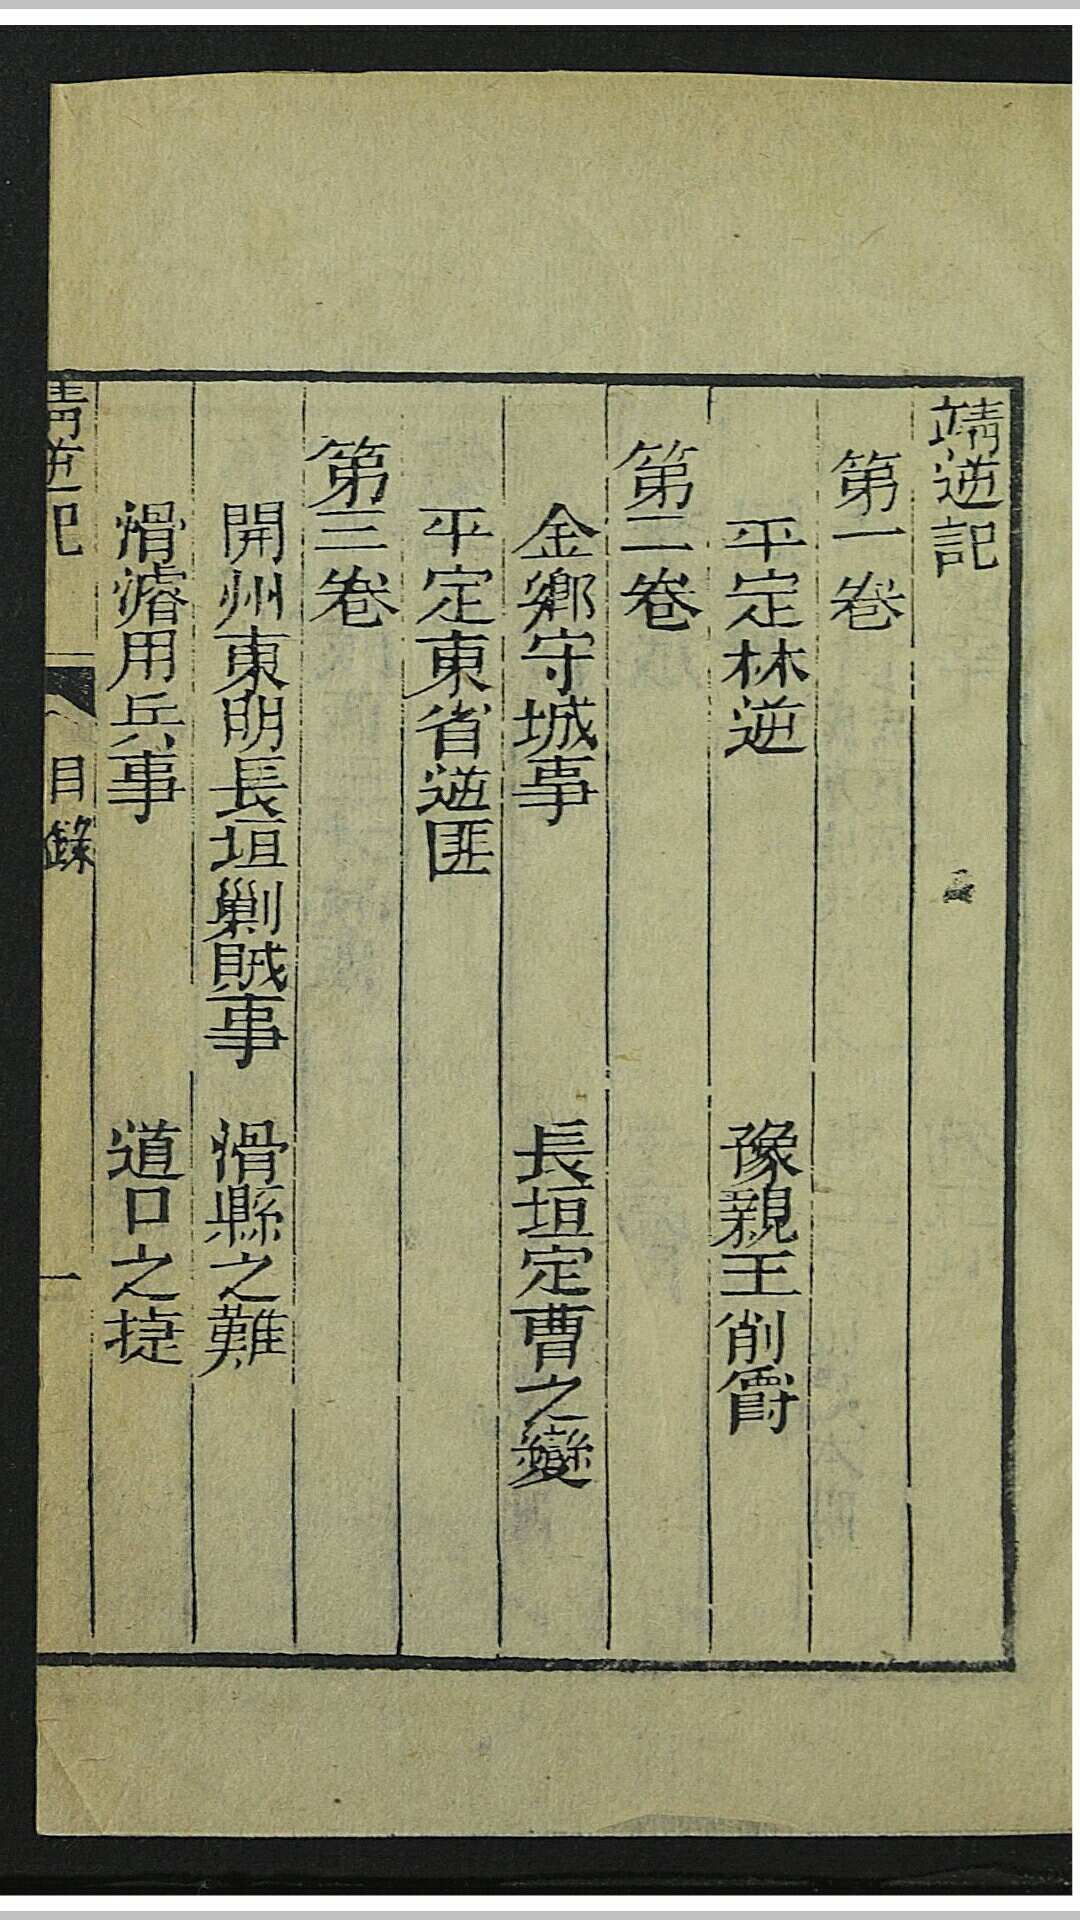 靖逆記
第一卷
平定林逆　豫親王削爵
第二卷
金鄉守城事　長垣定曹之變
平定東省逆匪
第三卷
開州東明長垣剿賊事　滑縣之難
滑濬用兵事　道口之捷
靖逆記　目錄　一